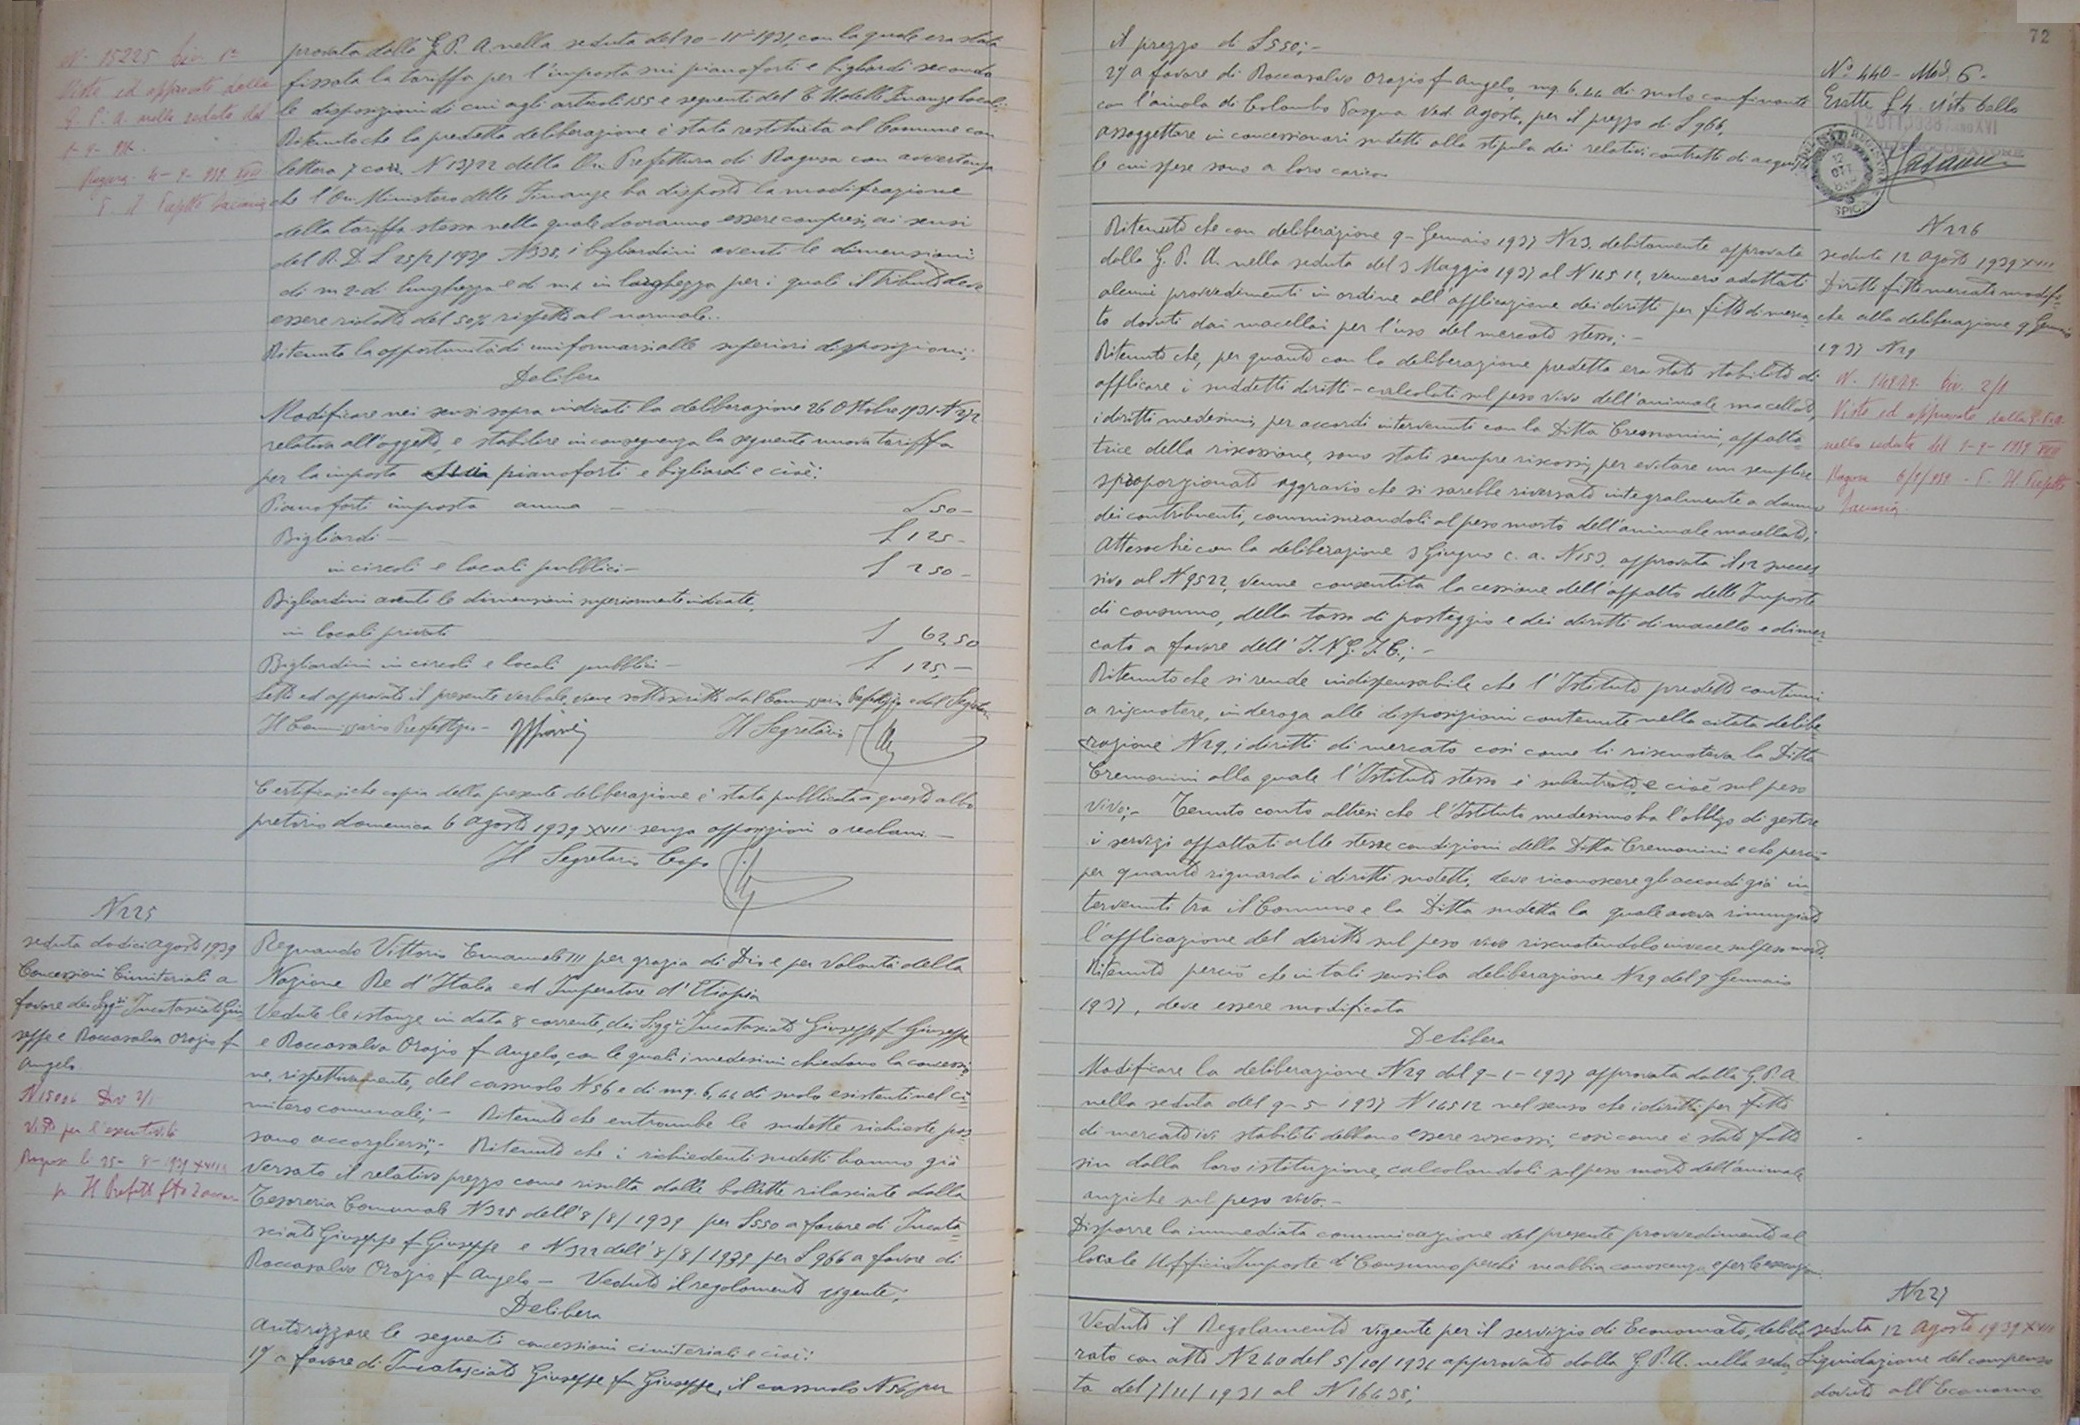 N. 15225 Div. 1ª
Visto ed approvato dalla
G. P. A. nella seduta del
1-9-939.
Ragusa 4-9-939 XVII
p. Il Prefetto
provata dalla G. P. A nella seduta del 20-11-1931, con la quale era stata
fissata la tariffa per l'imposta sui pianoforti e bigliardi secondo
le disposizioni di cui agli articoli 155 e seguenti del T. U delle Finanze locali:
Ritenuto che la predetta deliberazione è stata restituita al Comune con
lettera 7 corr. N 13722 della On. Prefettura di Ragusa con avvertenza
che l'On. Ministero delle Finanze ha disposto la modificazione
della tariffa stessa nella quale dovranno essere compresi, ai sensi
del R. D. L 25/2/1939 N 338, i bigliardini aventi le dimensioni
di m 2 di lunghezza e di m 1 in larghezza per i quali il tributo deve
essere ridotto del 50% rispetto al normale..
Ritenuta la opportunità di uniformarsi alle superiori disposizioni;
Delibera
Modificare nei sensi sopra indicati la deliberazione 26 Ottobre 1931 N 272
relativa all'oggetto, e stabilire in conseguenza la seguente nuova tariffa
per la imposta sui pianoforti e bigliardi e cioè:
Pianoforti imposta annua — L 50-
Bigliardi — L 125-
in circoli e locali pubblici — L 250-
Bigliardini aventi le dimensioni superiormente indicate,
in locali privati L 62,50
Bigliardini in circoli e locali pubblici — L 125,—
Letto ed approvato il presente verbale, viene sottoscritto dal Commissario Prefettizio e dal Segretario
Il Commissario Prefettizio - Il Segretario
Certificasi che copia della presente deliberazione è stata pubblicata a questo albo
pretorio domenica 6 agosto 1939 XVII senza opposizioni o reclami —
Il Segretario Capo
N 225
seduta dodici agosto 1939
Concessioni Cimiteriali a
favore dei Sigg.ri Incatasciato Giu
seppe e Roccasalva Orazio fu
Angelo
N 15006 Div 2/1
Visto per l'esecutività
Ragusa li 25-8-1939 XVII
p. Il Prefetto fto
Regnando Vittorio Emanuele III per grazia di Dio e per Volontà della
Nazione Re d'Italia ed Imperatore d'Etiopia
Vedute le istanze in data 8 corrente, dei Sigg.ri Incatasciato Giuseppe fu Giuseppe
e Roccasalva Orazio fu Angelo, con le quali i medesimi chiedono la concessio
ne, rispettivamente, del cassuolo N 56 e di mq. 6,44 di suolo esistenti nel ci-
mitero comunale; - Ritenuto che entrambe le sudette richieste pos
sono accogliersi; - Ritenuto che i richiedenti sudetti hanno già
versato il relativo prezzo come risulta dalle bollette rilasciate dalla
Tesoreria Comunale N 325 dell'8/8/1939 per L 550 a favore di Incata
sciato Giuseppe fu Giuseppe e N 322 dell'8/8/1939 per L 966 a favore di
Roccasalva Orazio fu Angelo — Veduto il regolamento vigente;
Delibera
Autorizzare le seguenti concessioni cimiteriali e cioè:
1) a favore di Incatasciato Giuseppe fu Giuseppe, il cassuolo N 56 per
72
il prezzo di L 550; -
2) a favore di Roccasalva Orazio fu Angelo, mq. 6.44 di suolo confinante
con l'aiuola di Colombo Pasqua Ved. Agosta, per il prezzo di L 966,
assoggettare in concessionari sudetti alla stipula dei relativi contratti di acquisto
le cui spese sono a loro carico.
N° 440 - Mod. 6 -
Esatte £ 4. visto bollo
12 OTT. 1938 Anno XVI
N 226
seduta 12 agosto 1939 XVII
Diritto fitto mercato modifi-
che alla deliberazione 9 Gennaio
1937 N 29
N. 14979. Div. 2/1
Visto ed approvato dalla G.P.A.
nella seduta del 1-9-1939 XVII
Ragusa 6/9/939 - p. Il Prefetto
Ritenuto che con deliberazione 9 Gennaio 1937 N 29, debitamente approvata
dalla G. P. A. nella seduta del 9 Maggio 1937 al N 16512, vennero adottati
alcuni provvedimenti in ordine all'applicazione dei diritti per fitto di merca-
to dovuti dai macellai per l'uso del mercato stesso; -
Ritenuto che, per quanto con la deliberazione predetta era stato stabilito di
applicare i suddetti diritti - calcolati sul peso vivo dell'animale macellato,
i diritti medesimi, per accordi intervenuti con la Ditta Cremonini, appalta
trice della riscossione, sono stati sempre riscossi, per evitare un semplice
sproporzionato aggravio che si sarebbe riversato integralmente a danno
dei contribuenti, commisurandoli al peso morto dell'animale macellato;
Attesochè con la deliberazione 3 Giugno c. a. N 153, approvata il 12 succes
sivo al N 9522, venne consentita la cessione dell'appalto delle Imposte
di consumo, della tassa di posteggio e dei diritti di macello e di mer-
cato a favore dell'I. N. G. I. C.; -
Ritenuto che si rende indispensabile che l'Istituto predetto continui
a riscuotere, in deroga alle disposizioni contenute nella citata delibe
razione N 29, i diritti di mercato così come li riscuoteva la Ditta
Cremonini alla quale l'Istituto stesso è subentrato, e cioè sul peso
vivo; - Tenuto conto altresì che l'Istituto medesimo ha l'obbligo di gestire
i servizi appaltati alle stesse condizioni della Ditta Cremonini e che perciò
per quanto riguarda i diritti sudetti, deve riconoscere gli accordi già in
tervenuti tra il Comune e la Ditta sudetta la quale aveva rinunziato
l'applicazione del diritto sul peso vivo riscuotendolo invece sul peso morto.
Ritenuto perciò che in tali sensi la deliberazione N 29 del 9 Gennaio
1937, deve essere modificata
Delibera
Modificare la deliberazione N 29 del 9-1-1937 approvata dalla G.P.A
nella seduta del 9-5-1937 N 16512 nel senso che i diritti per fitto
di mercato ivi stabiliti debbano essere riscossi, così come è stato fatto
sin dalla loro istituzione, calcolandoli sul peso morto dell'animale
anziche sul peso vivo. -
Disporre la immediata comunicazione del presente provvedimento al
locale Ufficio Imposte di Consumo perché ne abbia conoscenza e per la esecuzione.
N 227
seduta 12 agosto 1939 XVII
Liquidazione del compenso
dovuto all'Economo
Veduto il Regolamento vigente per il servizio di Economato, delibe
rato con atto N 240 del 5/10/1931 approvato dalla G.P.A. nella sedu
ta del 7/11/1931 al N 16438;